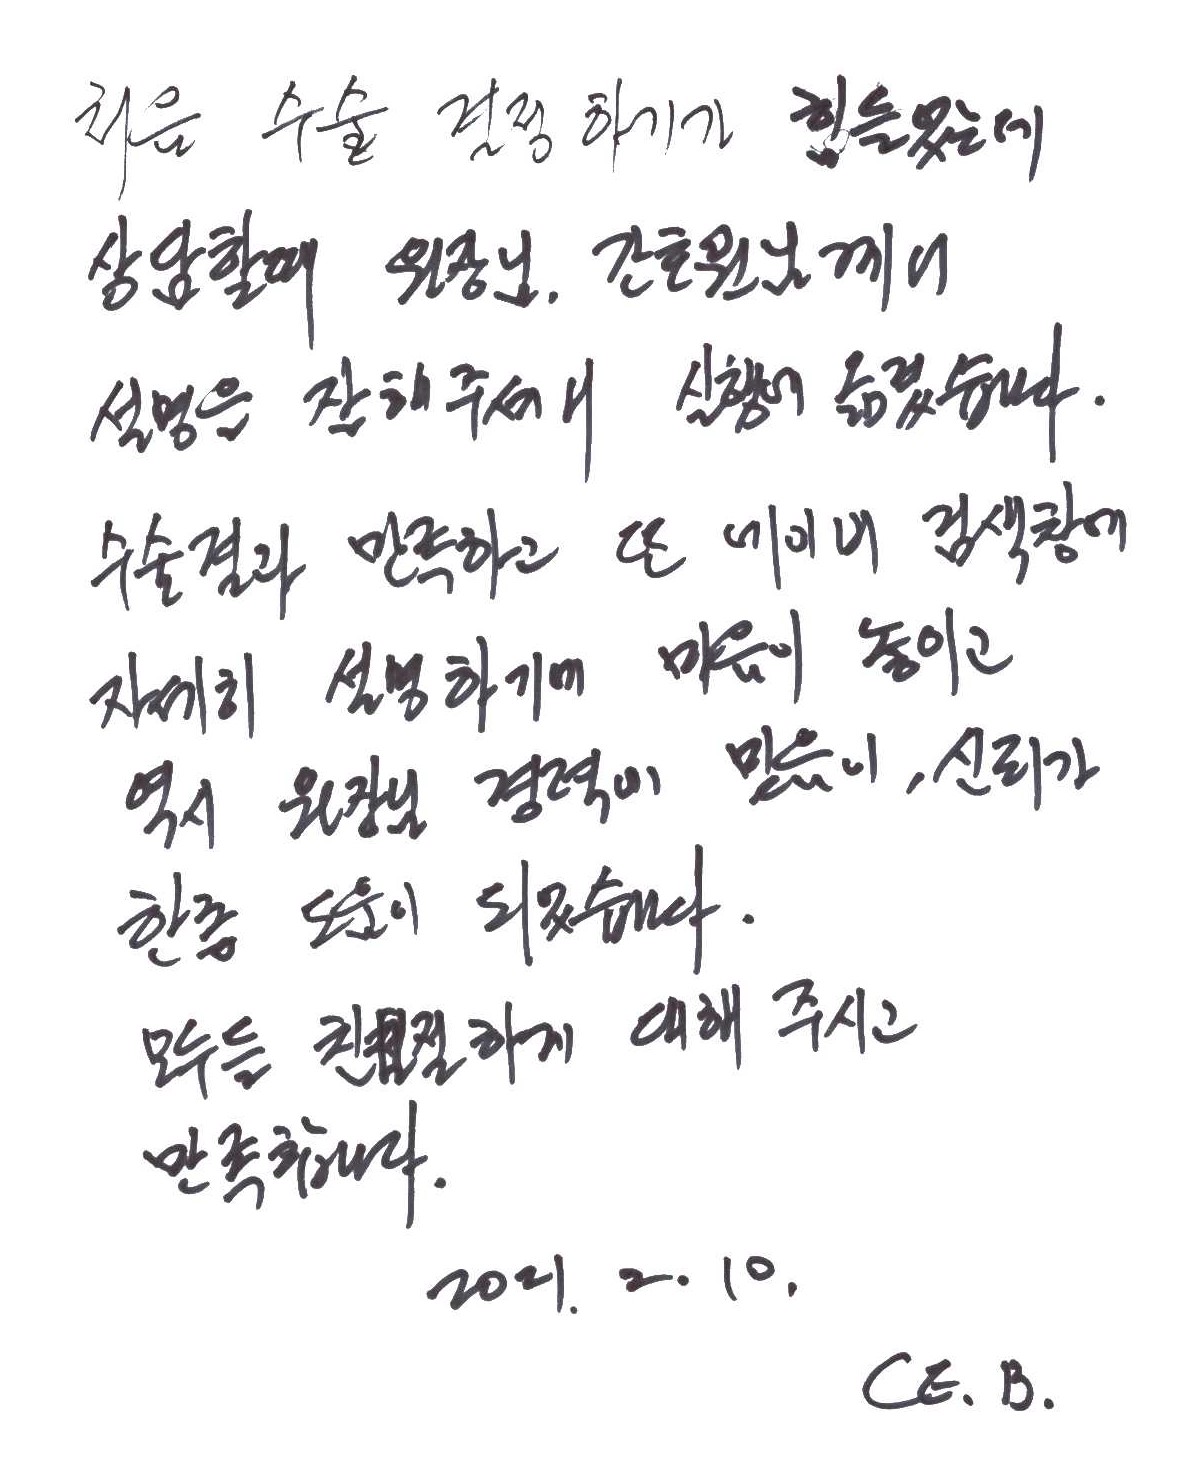 처음 수술 결정 하기가 힘들었는데
상담할때 원장님. 간호원님께서
설명을 잘해주셔서 실행에 옮겼습니다.
수술결과 만족하고 또 네이버 검색창에
자세히 설명하기에 마음이 놓이고
역시 원장님 경력이 믿음이, 신뢰가
한층 도움이 되었습니다.
모두들 친절하게 대해 주시고
만족합니다.
2021. 2. 10.
CE. B.